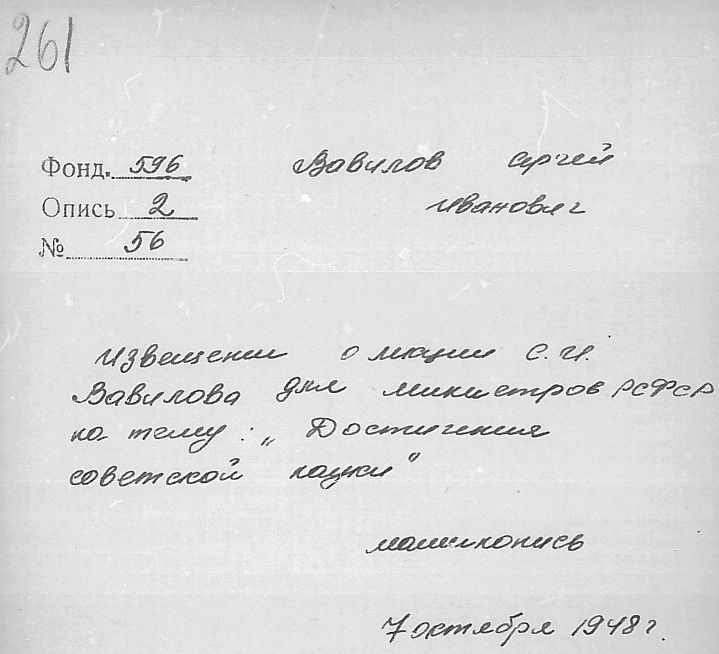 261
Фонд. 596 Вавилов Сергей
Опись 2 Иванович
№ 56
Извещении о лекции С.И.
Вавилова для министров РСФСР
на тему: „Достижения
советской науки"
машинопись
7 октября 1948 г.